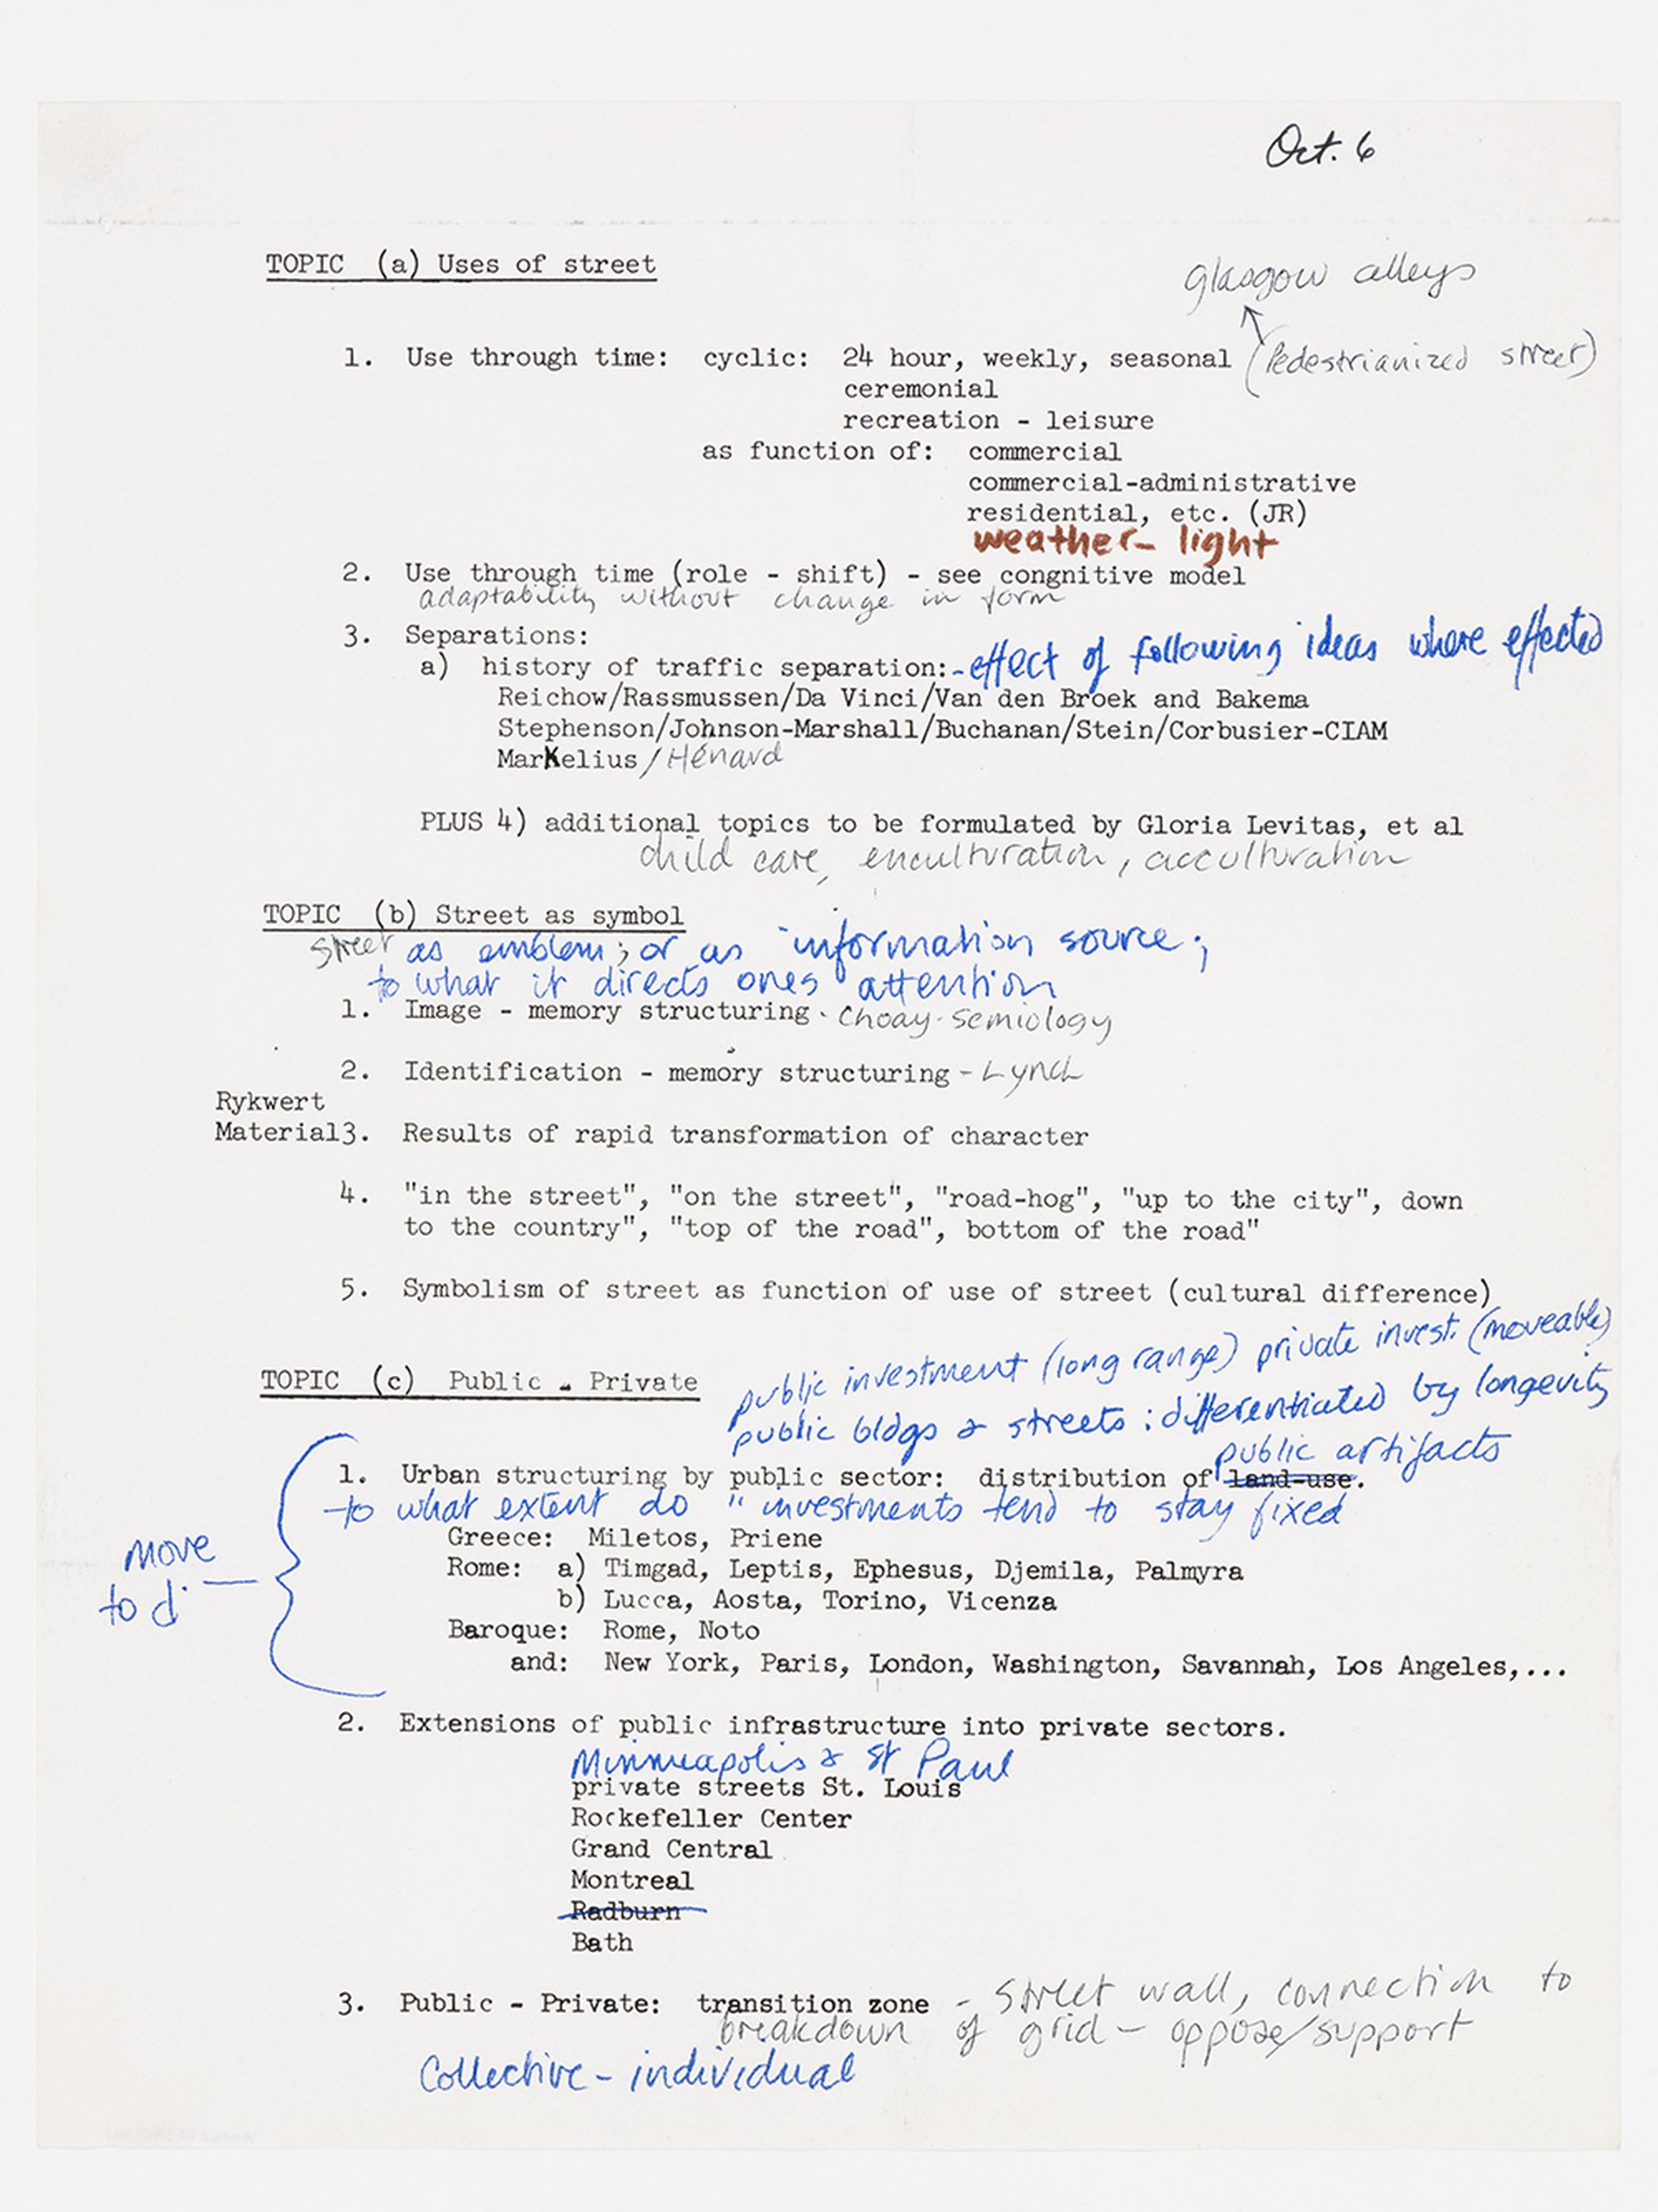 Oct. 6
TOPIC (a) Uses of street
glasgow alleys
1. Use through time: cyclic: 24 hour, weekly, seasonal (Pedestrianized street)
ceremonial
recreation - leisure
as function of: commercial
commercial-administrative
residential, etc. (JR)
weather - light
2. Use through time (role - shift) - see congnitive model
adaptability without change in form
3. Separations:
a) history of traffic separation: - effect of following ideas where effected
Reichow/Rassmussen/Da Vinci/Van den Broek and Bakema
Stephenson/Johnson-Marshall/Buchanan/Stein/Corbusier-CIAM
Markelius / Hénard
PLUS 4) additional topics to be formulated by Gloria Levitas, et al
child care, enculturation, acculturation
TOPIC (b) Street as symbol
street as emblem; or as information source;
to what it directs ones attention
1. Image - memory structuring - Choay - semiology
2. Identification - memory structuring - Lynch
Rykwert
Material 3. Results of rapid transformation of character
4. "in the street", "on the street", "road-hog", "up to the city", down
to the country", "top of the road", bottom of the road"
5. Symbolism of street as function of use of street (cultural difference)
public investment (long range) private invest. (moveable)
TOPIC (c) Public - Private
public bldgs & streets : differentiated by longevity
public artifacts
1. Urban structuring by public sector: distribution of land-use.
to what extent do " investments tend to stay fixed
Greece: Miletos, Priene
move
Rome: a) Timgad, Leptis, Ephesus, Djemila, Palmyra
to d.
b) Lucca, Aosta, Torino, Vicenza
Baroque: Rome, Noto
and: New York, Paris, London, Washington, Savannah, Los Angeles,...
2. Extensions of public infrastructure into private sectors.
Minneapolis & St Paul
private streets St. Louis
Rockefeller Center
Grand Central
Montreal
Radburn
Bath
3. Public - Private: transition zone - street wall, connection to
breakdown of grid - oppose/support
Collective - individual